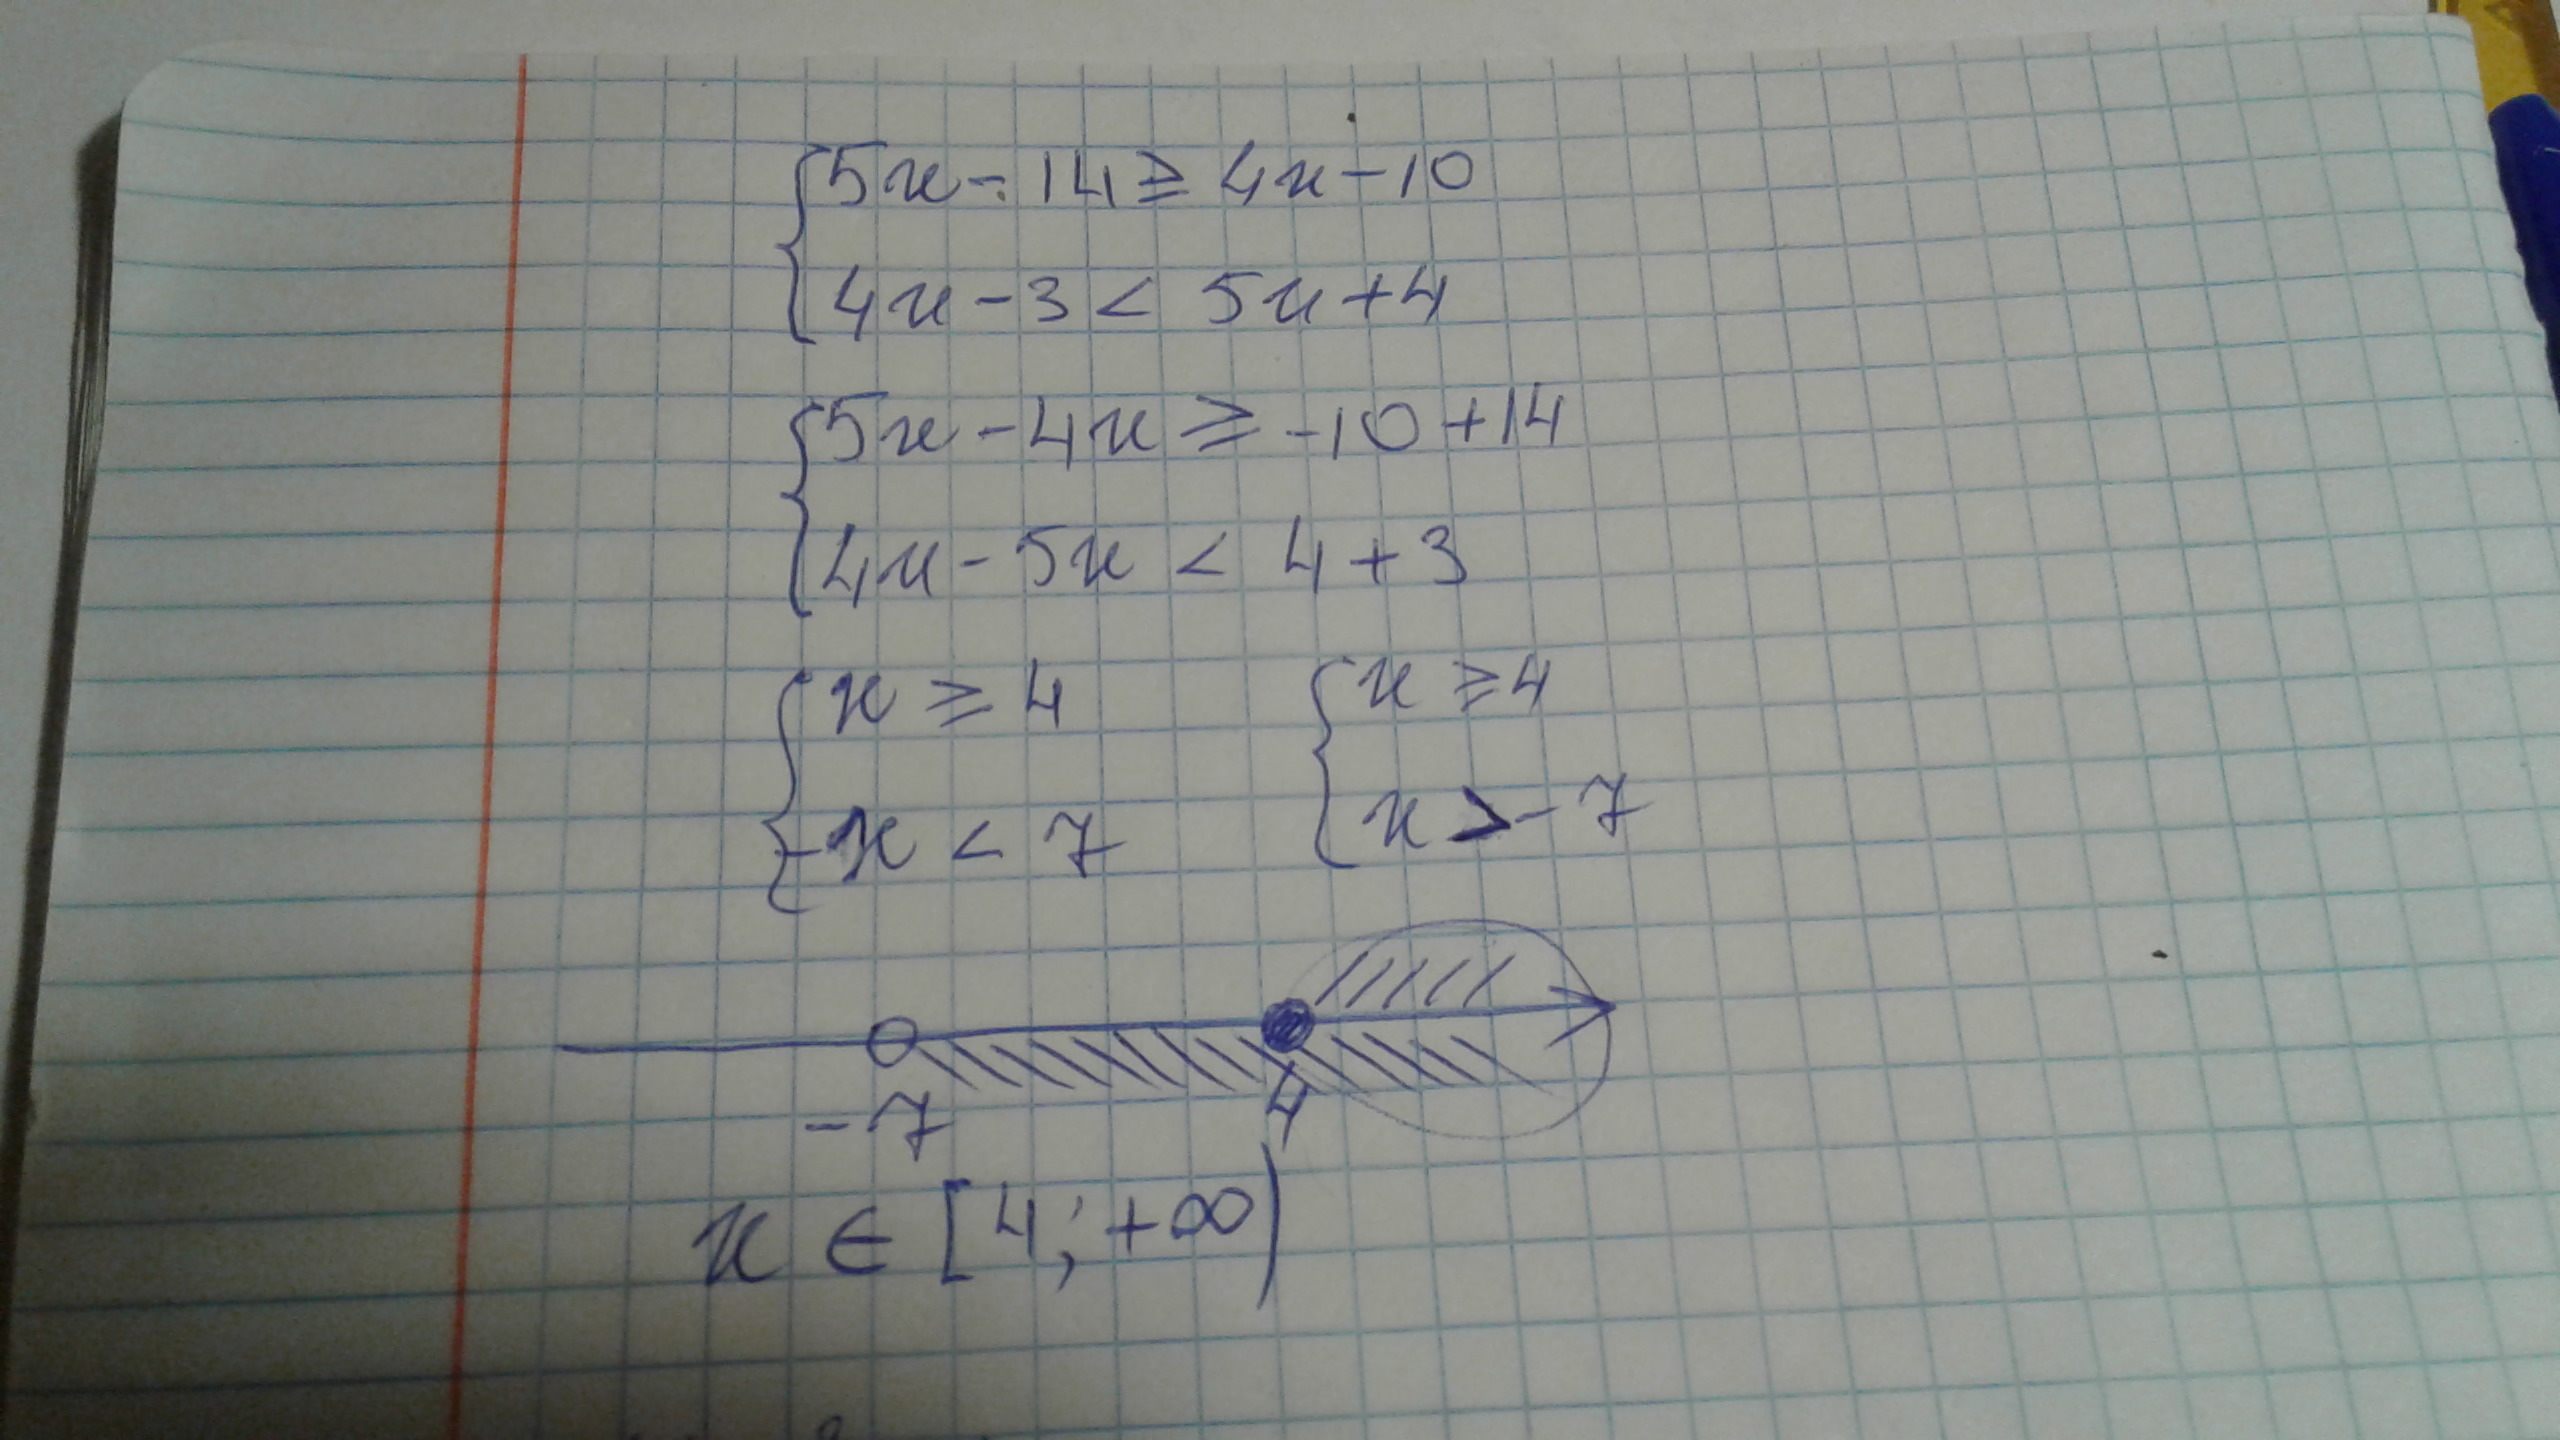 5x - 14 ≥ 4x - 10
4x - 3 < 5x + 4
5x - 4x ≥ -10 + 14
4x - 5x < 4 + 3
x ≥ 4
-x < 7
x ≥ 4
x > -7
-7 4
x ∈ [4; +∞)